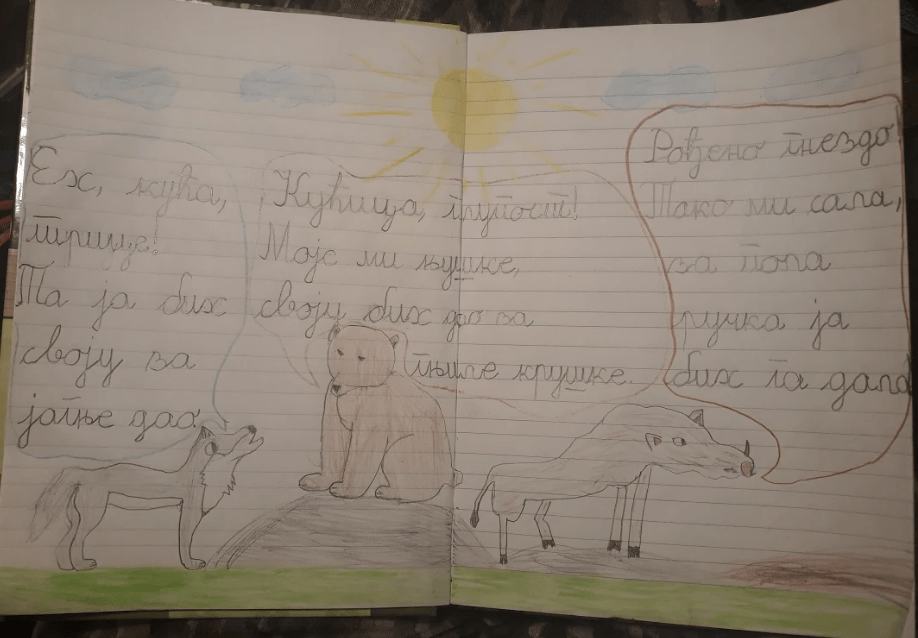 Ех, кућа,
трице!
Та ја бих
своју за
јагње дао.
Кућица, глупост!
Моје ми њушке,
своју бих дао за
гњиле крушке.
Рођено гнездо,
Тако ми сала,
за пола
ручка ја
бих га дала